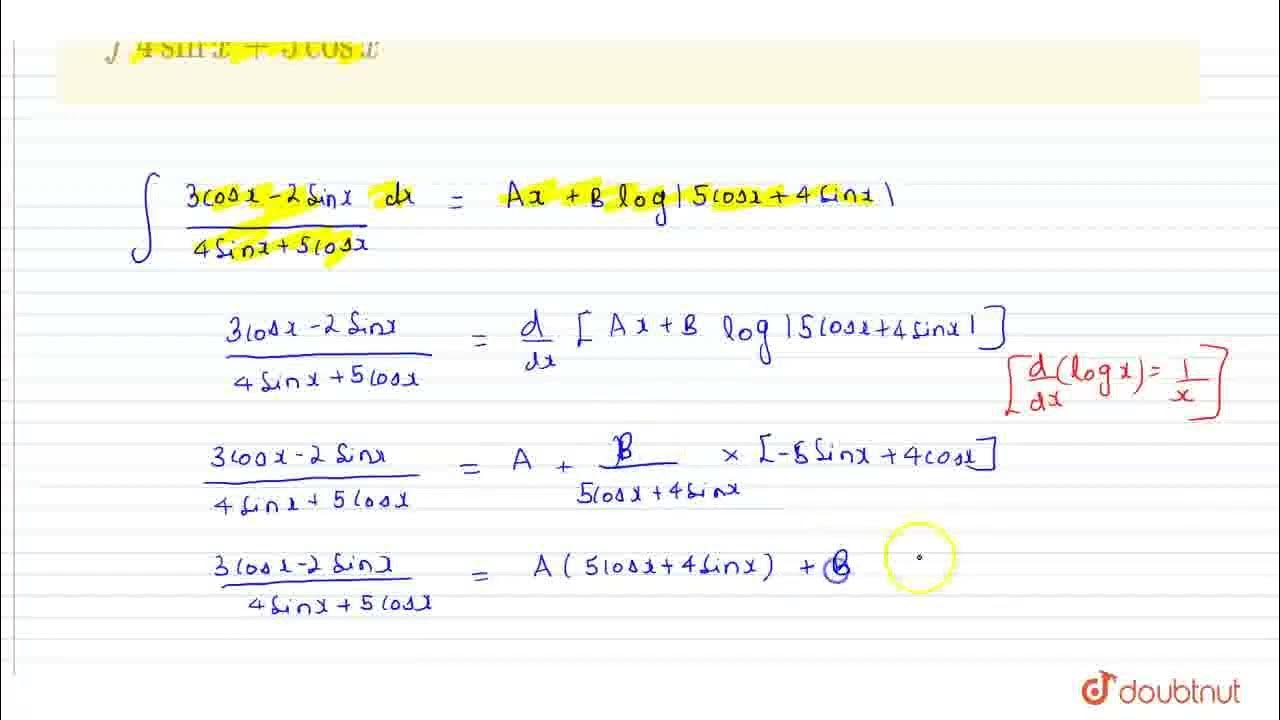 ∫ 4 sin x + 5 cos x
∫ (3cosx - 2 sinx)/(4 sinx + 5cosx) dx = Ax + B log|5cosx + 4 sinx|
(3cosx - 2 sinx)/(4 sinx + 5cosx) = d/dx [Ax + B log|5cosx + 4 sinx|]
[d/dx (log x) = 1/x]
(3cosx - 2 sinx)/(4 sinx + 5cosx) = A + B/(5cosx + 4 sinx) × [-5 sinx + 4cosx]
(3cosx - 2 sinx)/(4 sinx + 5cosx) = A(5cosx + 4 sinx) + B
doubtnut